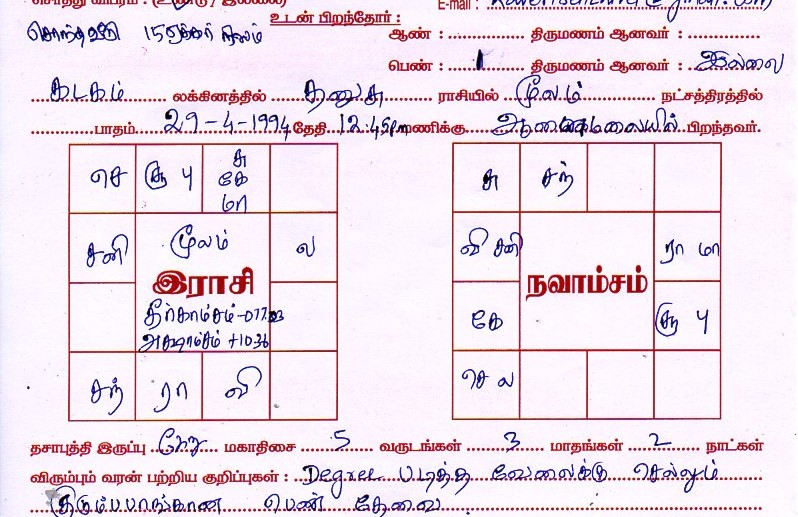 உடன் பிறந்தோர் :
E-mail :
சொந்தவீடு 15 ஏக்கர் நிலம்
ஆண் : திருமணம் ஆனவர் :
பெண் : 1 திருமணம் ஆனவர் : இல்லை
கடகம் லக்கினத்தில் தனுசு ராசியில் மூலம் நட்சத்திரத்தில்
பாதம் 29-4-1994 தேதி 12.45pm மணிக்கு ஆனைமலையில் பிறந்தவர்.
செ சூ பு சு கே மா
சனி ல
மூலம்
இராசி
தீர்காம்சம் -077.03
அகஷாம்சம் +10.36
சந் ரா வி
சு சந்
வி சனி ரா மா
நவாம்சம்
கே சூ பு
செ ல
தசாபுத்தி இருப்பு கேது மகாதிசை 5 வருடங்கள் 3 மாதங்கள் 2 நாட்கள்
விரும்பும் வரன் பற்றிய குறிப்புகள் : Degree படித்த வேலைக்கு செல்லும்
பெண் தேவை